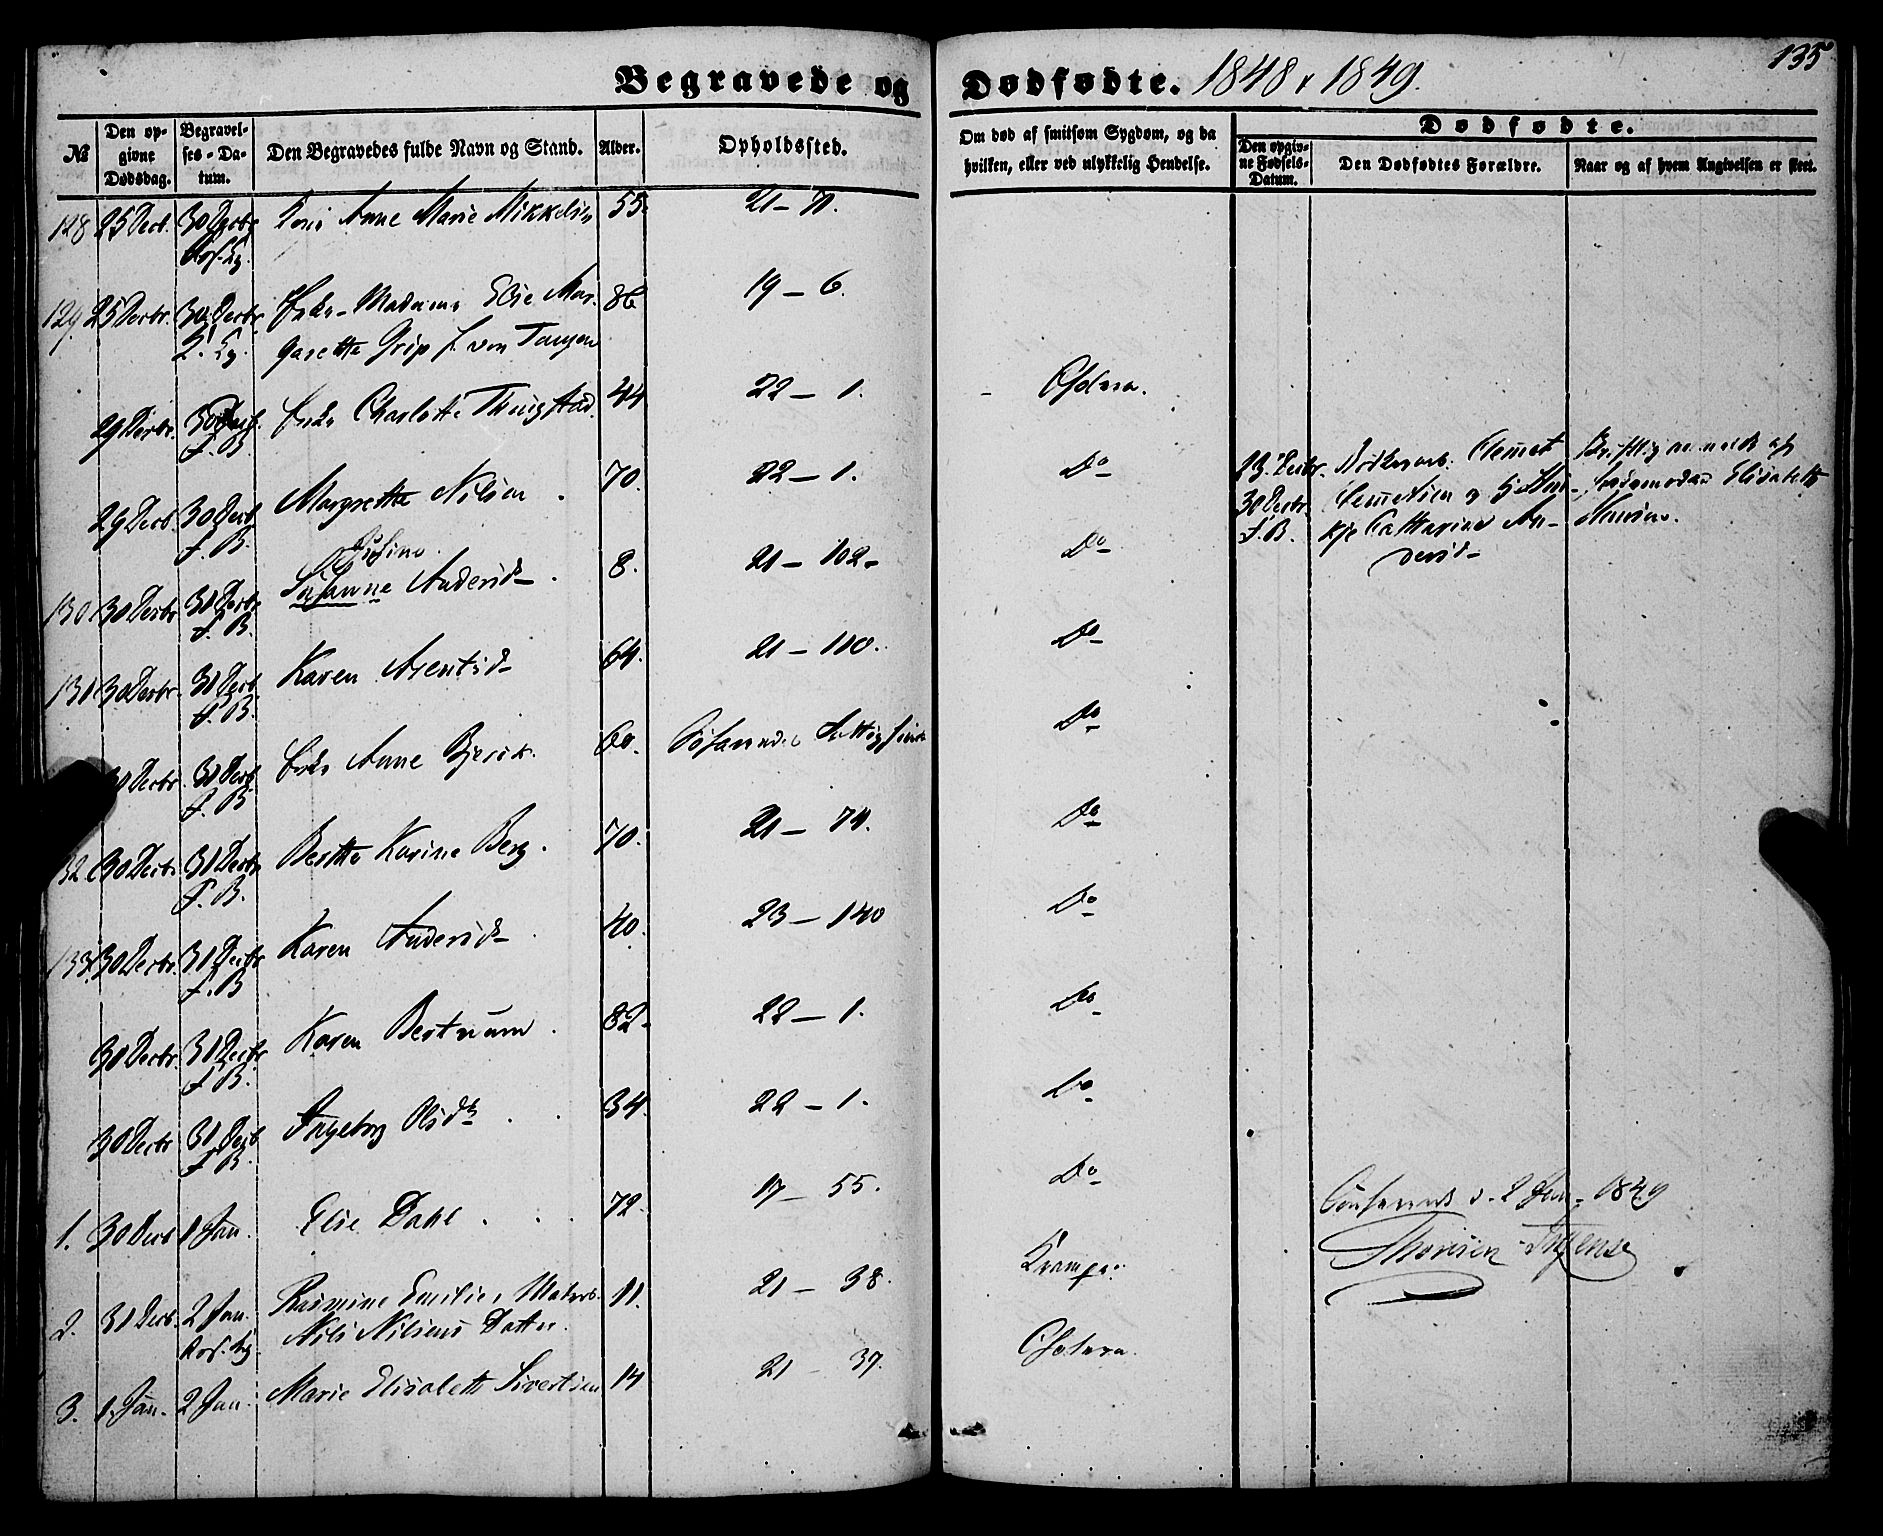 Begravede og Dødfødte. 1848 & 1849.
135
№
Den opgivne Dødsdag.
Begravelses-Datum.
Den Begravedes fulde Navn og Stand.
Alder.
Opholdssted.
Om død af smitsom Sygdom, og da hvilken, eller ved ulykkelig Hendelse.
Dødfødte.
Den opgivne Fødsels-Datum.
Den Dødfødtes Forældre.
Naar og af hvem Angivelsen er skeet.
128 25 Decb. 30 Decbr Kone Anne Marie Mikkelsen 55. 21 – 71.
129. 25 Decbr. 30 Decbr. Enke-Madame Elsie Mar- 86 19 – 6.
garetha Grip f. von Tangen
29 Decbr. 30 Decb. Enke Charlotte Thingstad. 44 22 – 1. Cholera.
F. B.
29 Decb. 30 Decb. Margrethe Nilsen. 70. 22 – 1. Do
F. B.
13. Decbr. Clemet
30 Decbr. Clemetsen og Elisabeth
F. B. Catharina An-
dersd.
130. 30 Decbr. 31 Decbr. Susanne Andersd. 8. 21 – 102. Do
F. B.
131. 30 Decbr. 31 Decb. Karen Arentsd. 64. 21 – 110. Do
F. B.
30 Decbr. 31 Decb. Enke Anne Bjerck. 60. Do
F. B.
132. 30 Decb. 31 Decbr. Berthe Karine Berg. 70. 21 – 74. Do
F. B.
133. 30 Decbr. 31 Decbr. Karen Andersd. 40. 23 – 140 Do
F. B.
30 Decbr. 31 Decbr. Karen Bertnum. 82. 22 – 1. Do
F. B.
30 Decbr. 31 Decb. Ingeborg Olsd. 34. 22 – 1. Do
F. B.
1. 30 Decb. 1 Jan. Elsie Dahl. 72. 17 – 55. Do
Confereret d. 2 Jan. 1849
2. 31 Decb. 2 Jan. Rasmine Emilie, 11. 21 – 38. Krampe.
Nils Nilsens Datter.
3. 1. Jan. 2 Jan. Marie Elisabeth Sivertsen 14 21 – 37. Cholera.